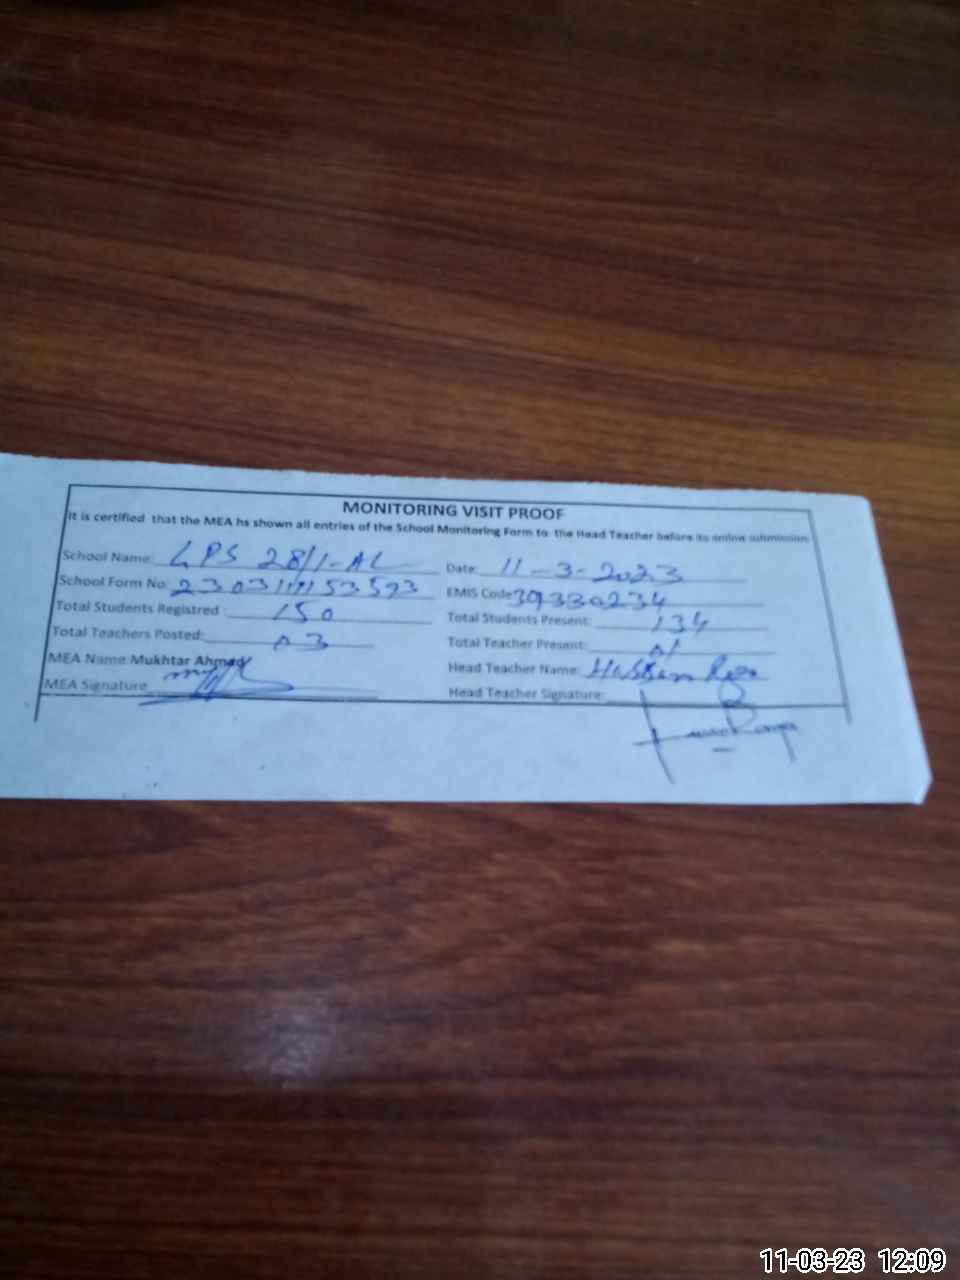 MONITORING VISIT PROOF
It is certified that the MEA hs shown all entries of the School Monitoring Form to the Head Teacher before its online submission
School Name: GPS 28/1-AL Date: 11-3-2023
School Form No: EMIS Code 39330234
Total Students Registered : 150 Total Students Present: 134
Total Teachers Posted: 03 Total Teacher Present: 01
MEA Name Mukhtar Ahmad Head Teacher Name: Hassan Raza
MEA Signature Head Teacher Signature:
11-03-23 12:09